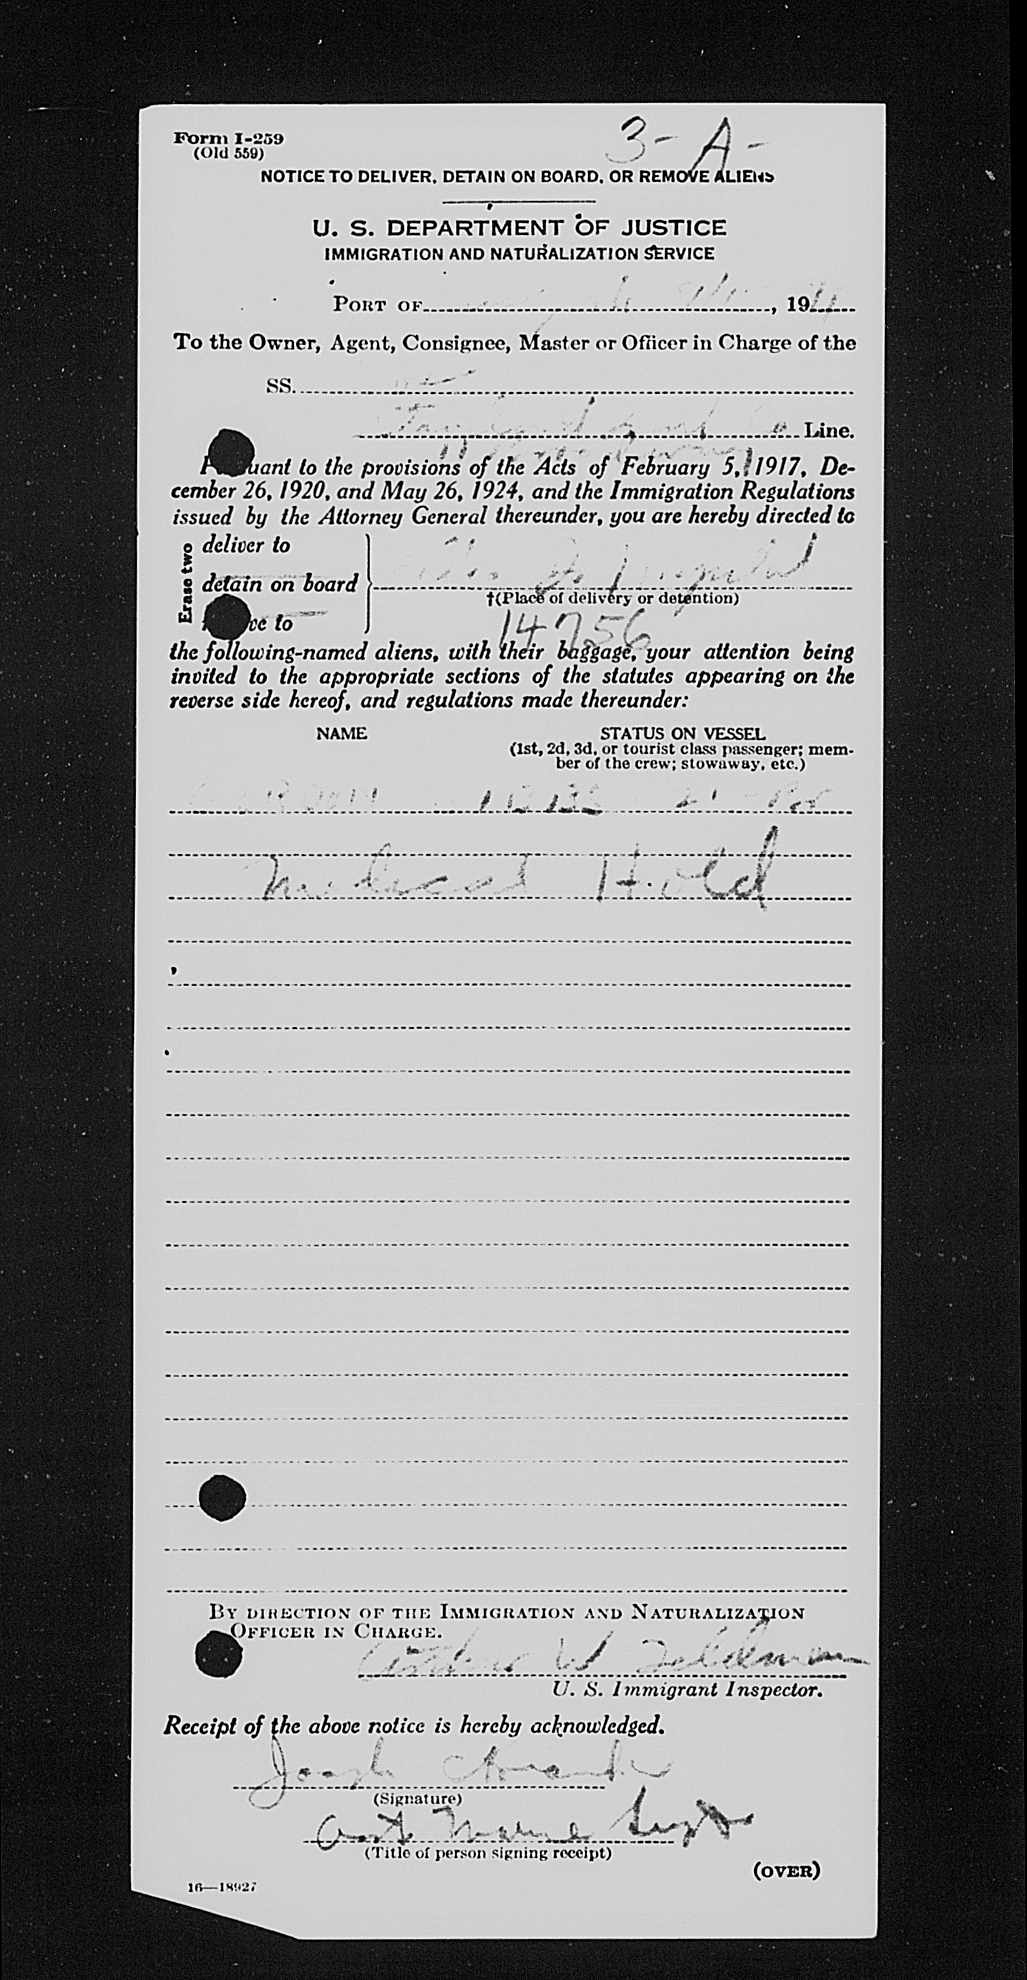 Form I-259
(Old 559)
3- A-
NOTICE TO DELIVER, DETAIN ON BOARD, OR REMOVE ALIENS
U. S. DEPARTMENT OF JUSTICE
IMMIGRATION AND NATURALIZATION SERVICE
PORT OF , 194
To the Owner, Agent, Consignee, Master or Officer in Charge of the
SS.
Line.
Pursuant to the provisions of the Acts of February 5, 1917, De-
cember 26, 1920, and May 26, 1924, and the Immigration Regulations
issued by the Attorney General thereunder, you are hereby directed to
Erase two
deliver to
detain on board
†(Place of delivery or detention)
ve to
14756
the following-named aliens, with their baggage, your attention being
invited to the appropriate sections of the statutes appearing on the
reverse side hereof, and regulations made thereunder:
NAME
STATUS ON VESSEL
(1st, 2d, 3d, or tourist class passenger; mem-
ber of the crew; stowaway, etc.)
Medical Hold
BY DIRECTION OF THE IMMIGRATION AND NATURALIZATION
OFFICER IN CHARGE.
W
U. S. Immigrant Inspector.
Receipt of the above notice is hereby acknowledged.
Joseph
(Signature)
Asst Marine Supt
(Title of person signing receipt)
(OVER)
16—18927